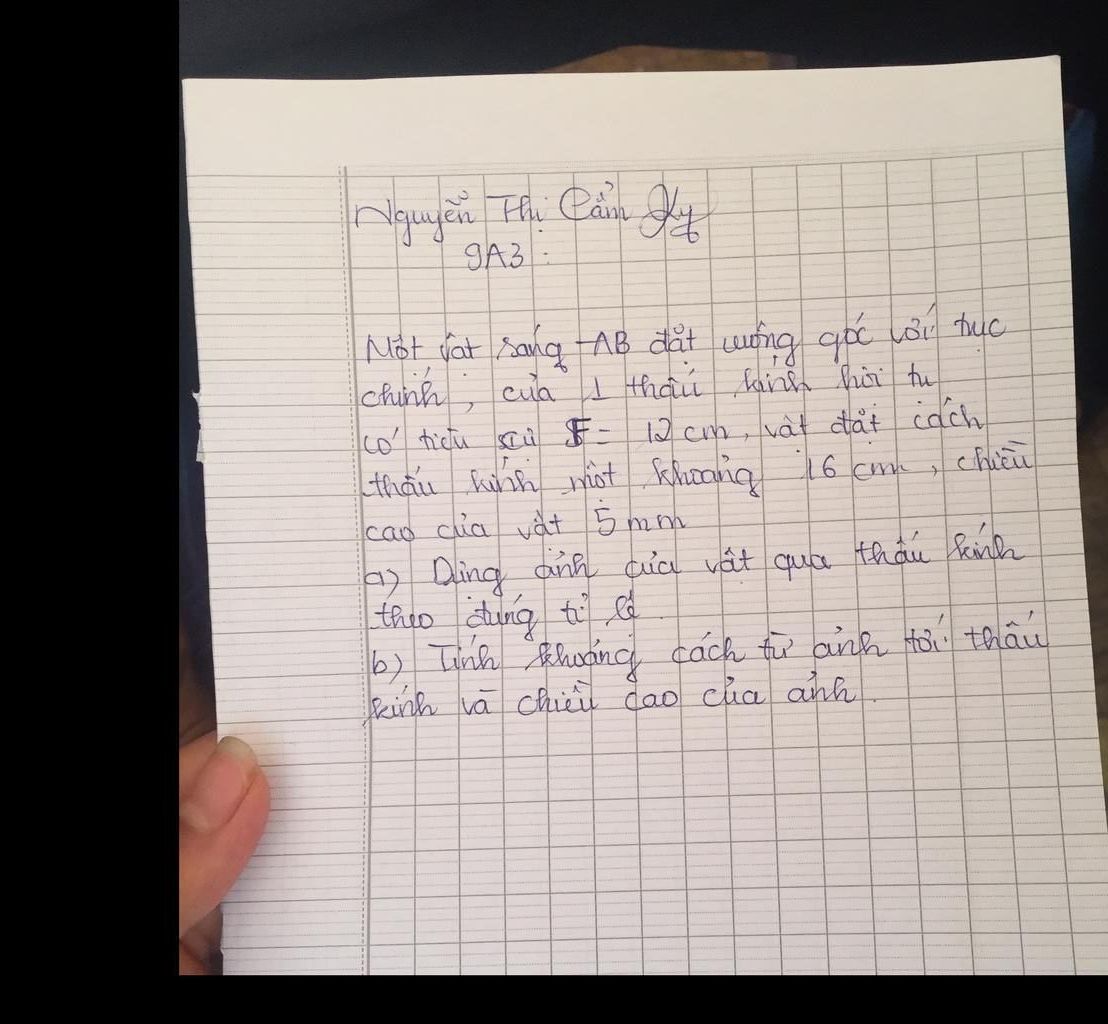 Nguyễn Thị Cẩm Ky
9A3 :
Một vật sáng AB đặt vuông góc với trục
chính, của 1 thấu kính hội tụ
có tiêu cự F = 12 cm, vật đặt cách
thấu kính một khoảng 16 cm, chiều
cao của vật 5 mm
a) Dựng ảnh của vật qua thấu kính
theo đúng tỉ lệ.
b) Tính khoảng cách từ ảnh tới thấu
kính và chiều cao của ảnh.